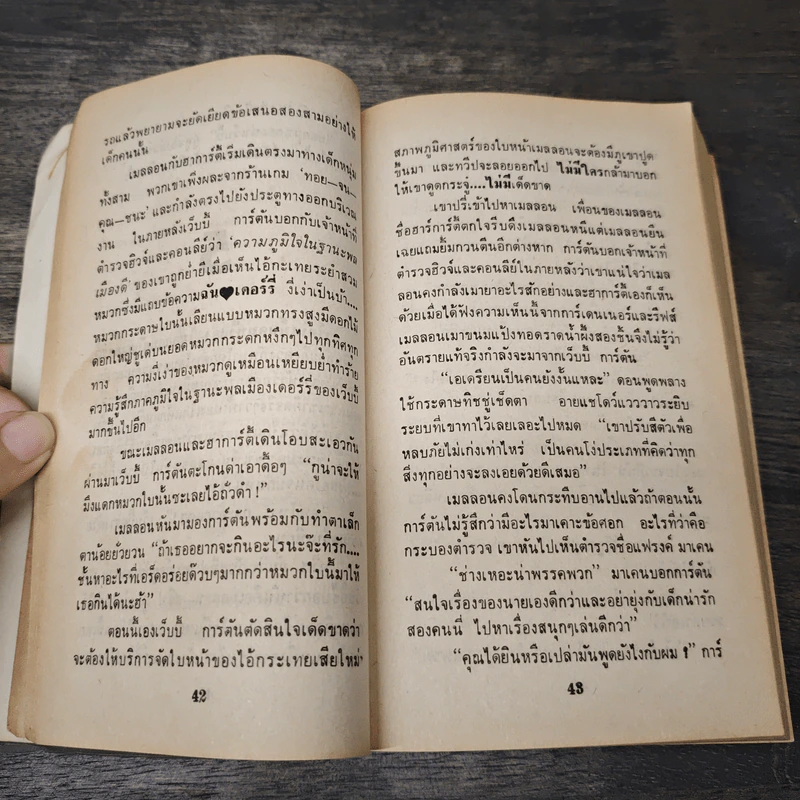 รถแล้วพยายามจะยัดเยียดข้อเสนอสองสามอย่างให้
เด็กคนนั้น
เมลลอนกับฮาการ์ตี้เริ่มเดินตรงมาทางเด็กหนุ่ม
ทั้งสาม พวกเขาเพิ่งผละจากร้านเกม ‘ทอย—จน—
คุณ—ชนะ’ และกำลังตรงไปยังประตูทางออกบริเวณ
งาน ในภายหลังเว็บบี้ การ์ตันบอกกับเจ้าหน้าที่
ตำรวจฮิวจ์และคอนลีย์ว่า ‘ความภูมิใจในฐานะพล
เมืองดี’ ของเขาถูกย่ำยีเมื่อเห็นไอ้กะเทยระยำสวม
หมวกซึ่งมีแถบข้อความฉัน♥เดอร์รี่ งี่เง่าเป็นบ้า....
หมวกกระดาษใบนั้นเลียนแบบหมวกทรงสูงมีดอกไม้
ดอกใหญ่ชูเด่บนยอดหมวกกระดกหงึกๆไปทุกทิศทุก
ทาง ความงี่เง่าของหมวกดูเหมือนเหยียบย่ำทำร้าย
ความรู้สึกภาคภูมิใจในฐานะพลเมืองเดอร์รี่ของเว็บบี้
มากขึ้นไปอีก
ขณะเมลลอนและฮาการ์ตี้เดินโอบสะเอวกัน
ผ่านมาเว็บบี้ การ์ตันตะโกนด่าเอาดื้อๆ “กูน่าจะให้
มึงแดกหมวกใบนั้นซะเลยไอ้ถั่วดำ !”
เมลลอนหันมามองการ์ตันพร้อมกับทำตาเล็ก
ตาน้อยยั่วยวน “ถ้าเธออยากจะกินอะไรนะจ๊ะที่รัก....
ชั้นหาอะไรที่เอร็ดอร่อยด๊วบๆมากกว่าหมวกใบนี้มาให้
เธอกินได้นะฮ้า”
ตอนนี้เองเว็บบี้ การ์ตันตัดสินใจเด็ดขาดว่า
จะต้องให้บริการจัดใบหน้าของไอ้กระเทยเสียใหม่
42
สภาพภูมิศาสตร์ของใบหน้าเมลลอนจะต้องมีภูเขาปูด
ขึ้นมา และทวีปจะลอยออกไป ไม่มีใครกล้ามาบอก
ให้เขาดูดกระจู๋....ไม่มีเด็ดขาด
เขาปรี่เข้าไปหาเมลลอน เพื่อนของเมลลอน
ชื่อฮาร์การ์ตี้ตกใจรีบดึงเมลลอนหนีแต่เมลลอนยืน
เฉยแถมยิ้มกวนตีนอีกต่างหาก การ์ตันบอกเจ้าหน้าที่
ตำรวจฮิวจ์และคอนลีย์ในภายหลังว่าเขาแน่ใจว่าเมล
ลอนคงกำลังเมายาอะไรสักอย่างและฮาการ์ตี้เองก็เห็น
ด้วยเมื่อได้ฟังความเห็นนี้จากการ์เดนเนอร์และรีฟส์
เมลลอนเมาขนมแป้งทอดราดน้ำผึ้งสองชิ้นจึงไม่รู้ว่า
อันตรายแท้จริงกำลังจะมาจากเว็บบี้ การ์ตัน
“เอเดรียนเป็นคนยังงั้นแหละ” ดอนพูดพลาง
ใช้กระดาษทิชชู่เช็ดตา อายแชโดว์แวววาวระยิบ
ระยบที่เขาทาไว้เลยเลอะไปหมด “เขาปรับสีตัวเพื่อ
หลบภัยไม่เก่งเท่าไหร่ เป็นคนโง่ประเภทที่คิดว่าทุก
สิ่งทุกอย่างจะลงเอยด้วยดีเสมอ”
เมลลอนคงโดนกระทืบอานไปแล้วถ้าตอนนั้น
การ์ตันไม่รู้สึกว่ามีอะไรมาเคาะข้อศอก อะไรที่ว่าคือ
กระบองตำรวจ เขาหันไปเห็นตำรวจชื่อแฟรงค์ มาเคน
“ช่างเหอะน่าพรรคพวก” มาเคนบอกการ์ตัน
“สนใจเรื่องของนายเองดีกว่าและอย่ายุ่งกับเด็กน่ารัก
สองคนนี่ ไปหาเรื่องสนุกๆเล่นดีกว่า”
“คุณได้ยินหรือเปล่ามันพูดยังไงกับผม !” การ์
43